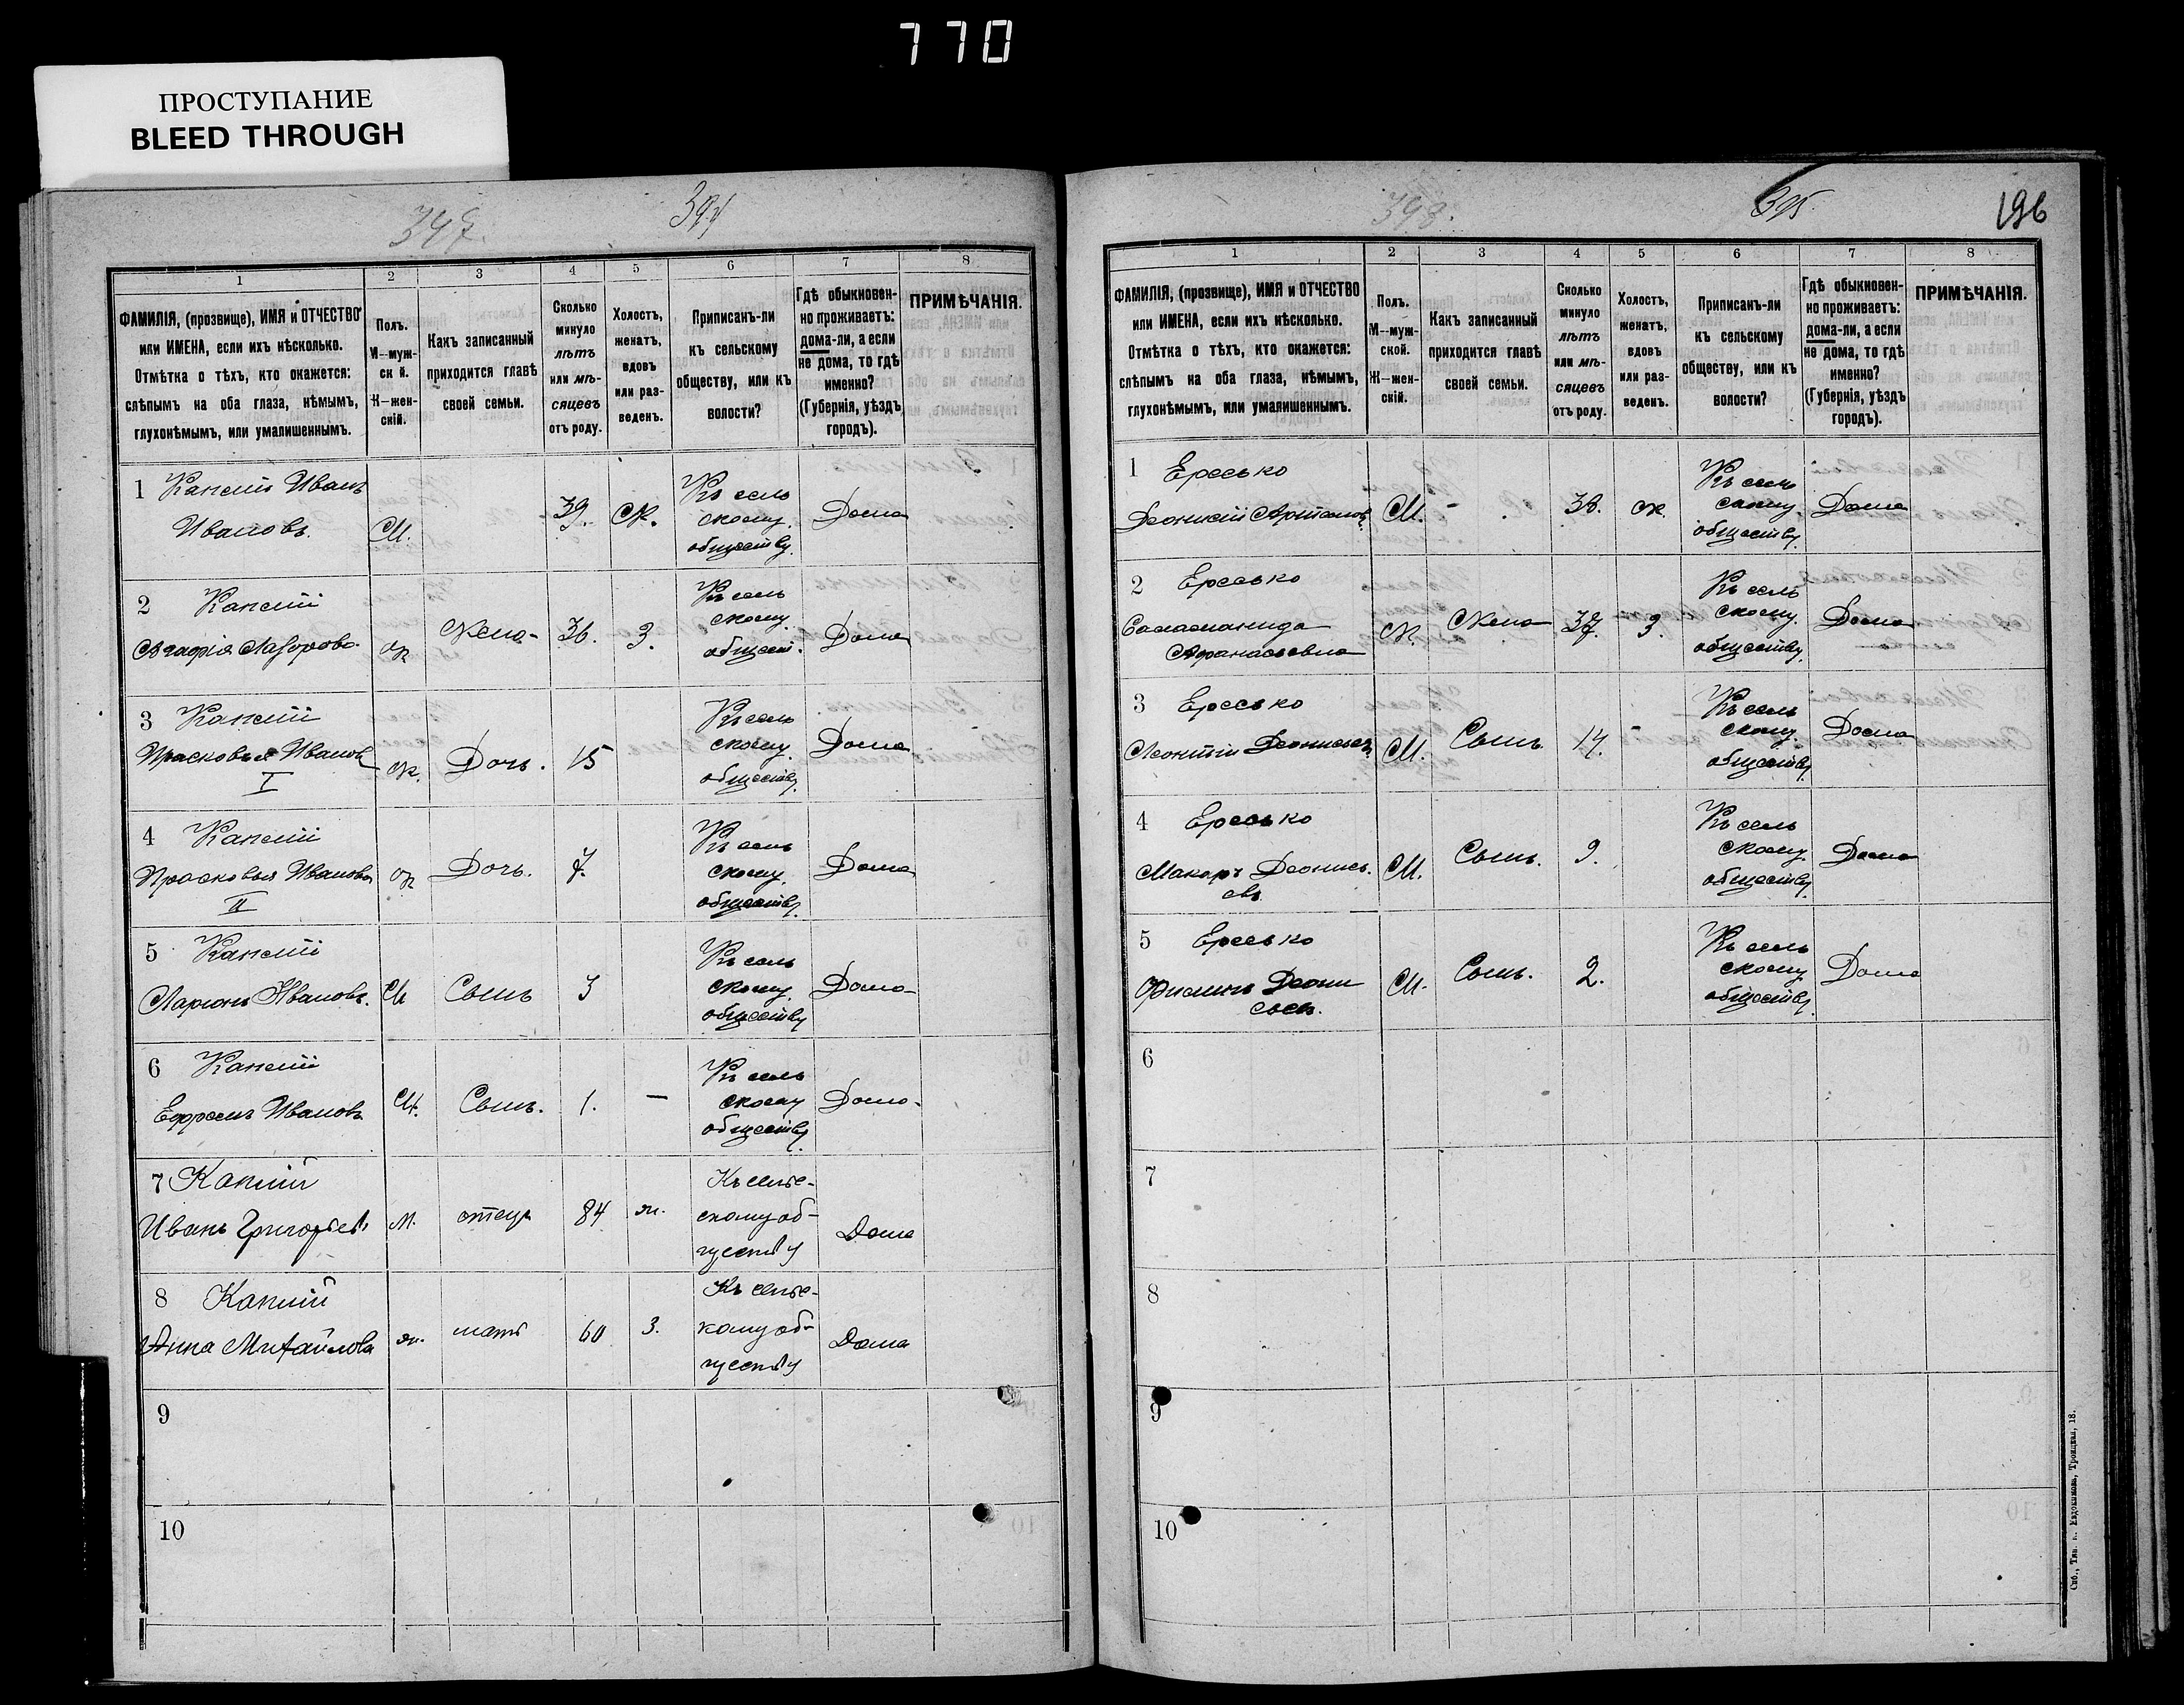 770
ПРОСТУПАНИЕ
BLEED THROUGH
347.
394
1 2 3 4 5 6 7 8
ФАМИЛІЯ, (прозвище), ИМЯ и ОТЧЕСТВО или ИМЕНА, если ихъ нѣсколько. Отмѣтка о тѣхъ, кто окажется: слѣпымъ на оба глаза, нѣмымъ, глухонѣмымъ, или умалишеннымъ.
Полъ. М—муж-ск й. Ж—жен-скій.
Какъ записанный приходится главѣ своей семьи.
Сколько минуло лѣтъ или мѣ-сяцевъ отъ роду.
Холостъ, женатъ, вдовъ или раз-веденъ.
Приписанъ-ли къ сельскому обществу, или къ волости?
Гдѣ обыкновен-но проживаетъ: дома-ли, а если не дома, то гдѣ именно? (Губернія, уѣздъ, городъ).
ПРИМѢЧАНІЯ.
1 Капшій Иванъ
Ивановъ. М. 39. Ж. Къ сель
скому обществу. Дома
2 Капшій
Агафія Лазорова Ж Жена 36. З. Къ сель
скому общест. Дома
3 Капшій
Прасковья Иванов
I Ж. Дочь. 15 Къ сель
скому обществу. Дома
4 Капшій
Прасковья Иванова
II Ж Дочь. 7. Къ сель
скому обществу. Дома
5 Капшій
Ларіонъ Ивановъ. М Сынъ 3 Къ сель
скому обществу Дома
6 Капшій
Ефремъ Ивановъ М. Сынъ. 1. — Къ сель
скому обществу. Дома
7 Капшій
Иванъ Григорьев М. отецъ 84 ж. Къ сельс-
скому об-
ществу Дома
8 Капшій
Анна Михайлова ж. мать 60 З. Къ сельс-
кому об-
ществу Дома
9
10
398.
395
196
1 2 3 4 5 6 7 8
ФАМИЛІЯ, (прозвище), ИМЯ и ОТЧЕСТВО или ИМЕНА, если ихъ нѣсколько. Отмѣтка о тѣхъ, кто окажется: слѣпымъ на оба глаза, нѣмымъ, глухонѣмымъ, или умалишеннымъ.
Полъ. М—муж-ской. Ж—жен-скій.
Какъ записанный приходится главѣ своей семьи.
Сколько минуло лѣтъ или мѣ-сяцевъ отъ роду.
Холостъ, женатъ, вдовъ или раз-веденъ.
Приписанъ-ли къ сельскому обществу, или къ волости?
Гдѣ обыкновен-но проживаетъ: дома-ли, а если не дома, то гдѣ именно? (Губернія, уѣздъ городъ).
ПРИМѢЧАНІЯ.
1 Ересько
Деонисій М. - 38. Ж. Къ сель
скому обществу. Дома
2 Ересько
Саламанида
Афанасьевна Ж. Жена 37. З. Къ сель
скому обществу. Дома
3 Ересько
Леонтій Деонисьевъ М. Сынъ 14. - Къ сель
скому обществу Дома
4 Ересько
Макаръ Деонись.
евъ М. Сынъ. 9. Къ сель
скому обществу Дома
5 Ересько
Филипъ Деони
сьевъ. М. Сынъ. 2. Къ сель
скому обществу Дома
6
7
8
9
10
Спб., Тип. п. Евдокимова, Троицкая, 18.